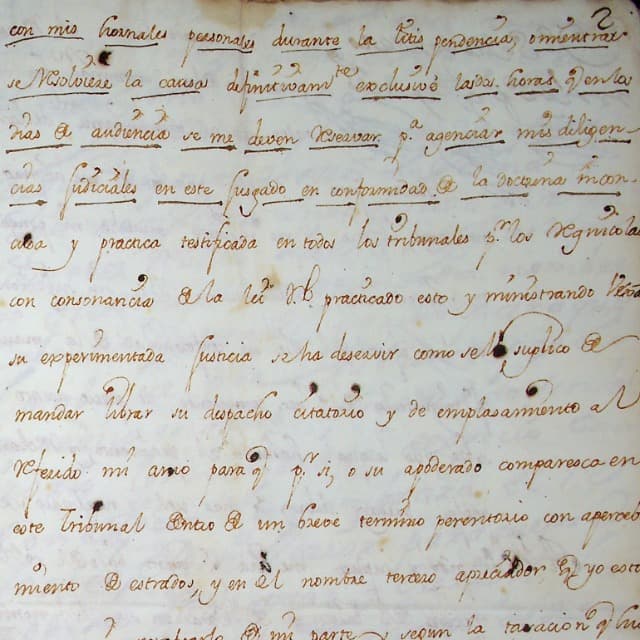 2
con mis Jornales personales durante la litis pendencia, o mientras
se Resolviere la causa definitivamte exclusivè las dos horas q en los
dias de audiencia se me deven Reservar pa agenciar mis diligen-
cias Judiciales en este Jusgado en conformidad de la doctrina incon-
cusa y practica testificada en todos los tribunales pr los Regnicolas
con consonancia de la practicado esto y ministrando
su experimentada Justicia se ha deservir como se lo suplico de
mandar librar su despacho citatorio y de emplasamiento al
Referido mi amo para q pr si, o su apoderado comparesca en
este Tribunal dentro de un breve termino perentorio con aperceb
miento de estrados, y en el nombre tercero apreciador, yo esto
de mi parte y segun la tasacion q